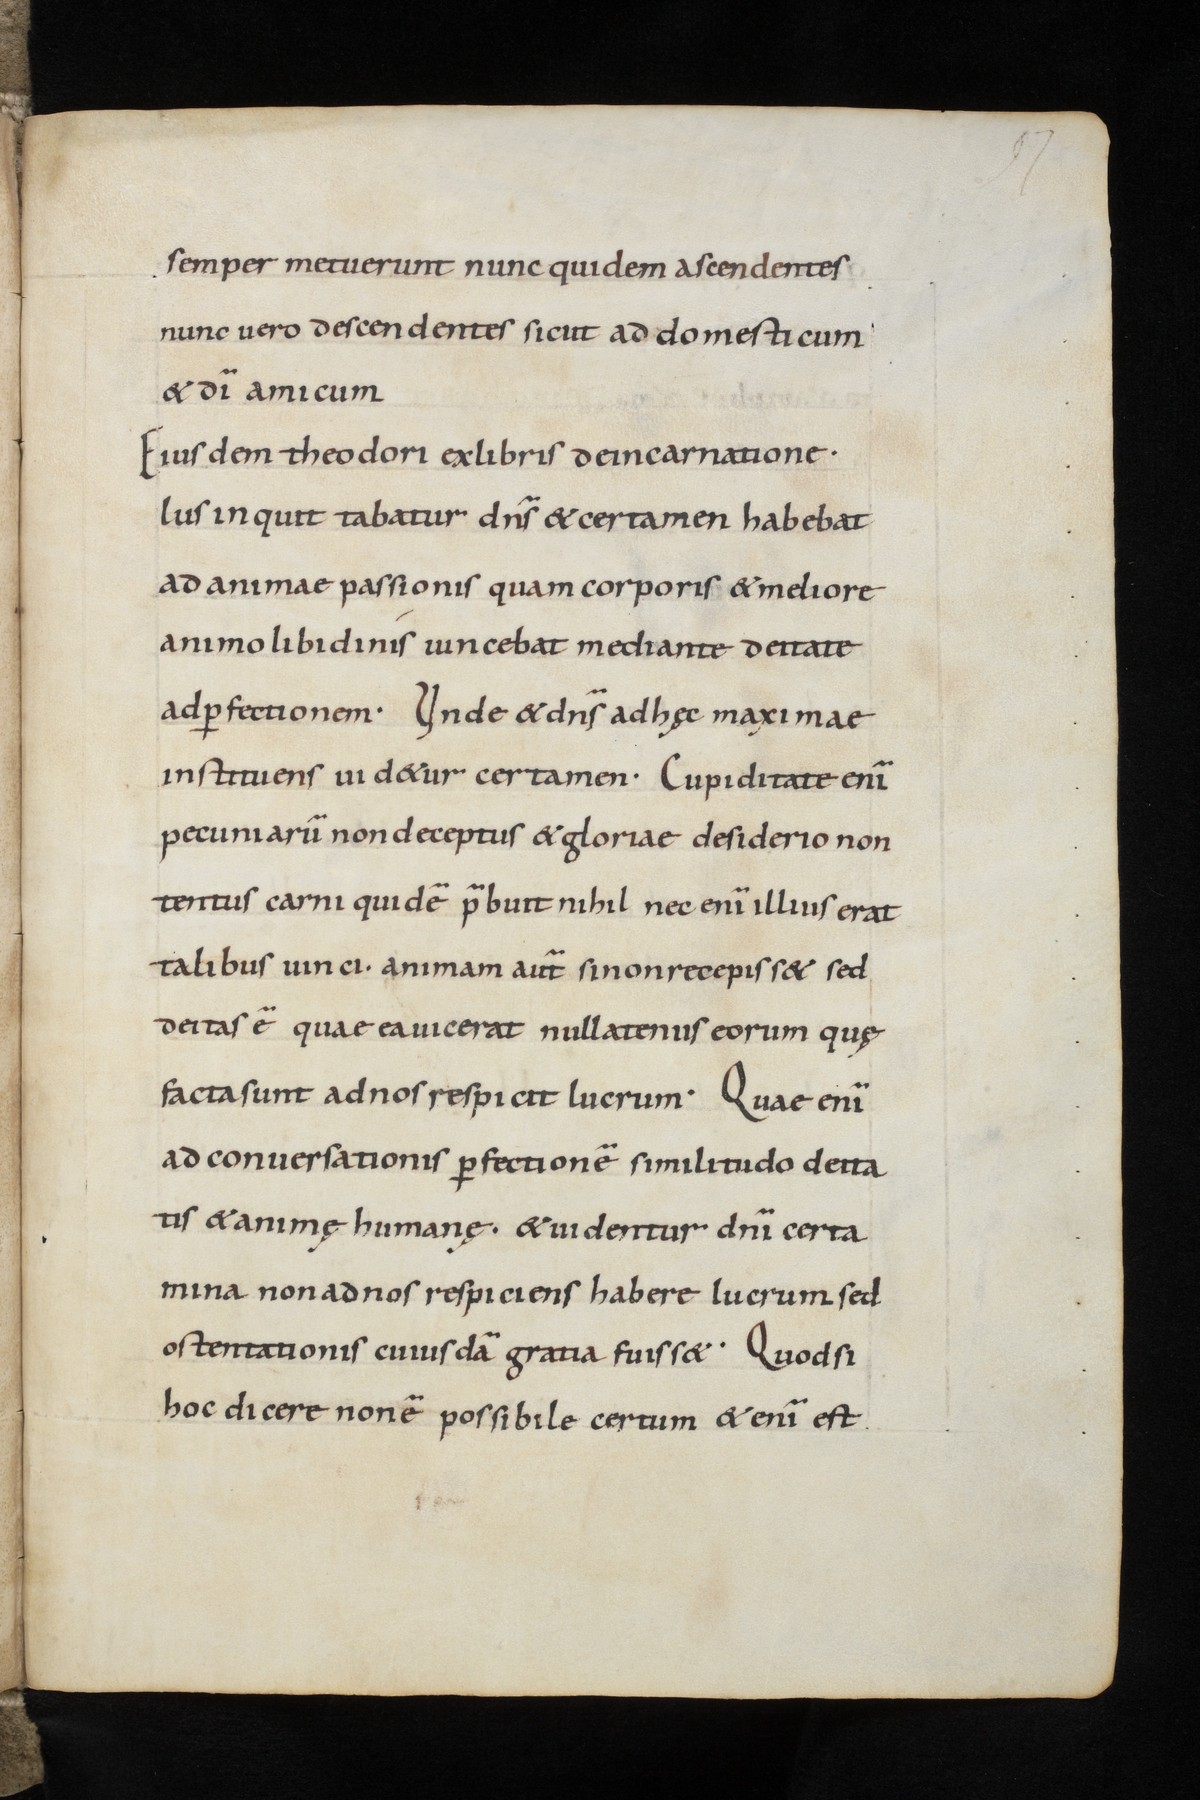 57
semper metuerunt nunc quidem ascendentes
nunc uero descendentes sicut ad domesticum
& dī amicum
Eiusdem theodori ex libris de incarnatione·
lus inquit tabatur dns̄ & certamen habebat
ad animae passionis quam corporis & meliore
animo libidinis uincebat mediante deitate
ad ꝑfectionem· Unde & dns̄ ad hęc maximae
instituens uid&ur certamen· Cupiditate enī
pecuniarū non deceptus & gloriae desiderio non
tentus carni quidē p̄buit nihil nec enī illius erat
talibus uinci· animam aut̄ si non recepiss& sed
deitas ē quae ea uicerat nullatenus eorum quę
facta sunt ad nos respicit lucrum· Quae enī
ad conuersationis ꝑfectionē similitudo deita
tis & animę humanę· & uidentur dnī certa
mina non ad nos respiciens habere lucrum sed
ostentationis cuiusdā gratia fuiss&· Quod si
hoc dicere non ē possibile certum & enī est